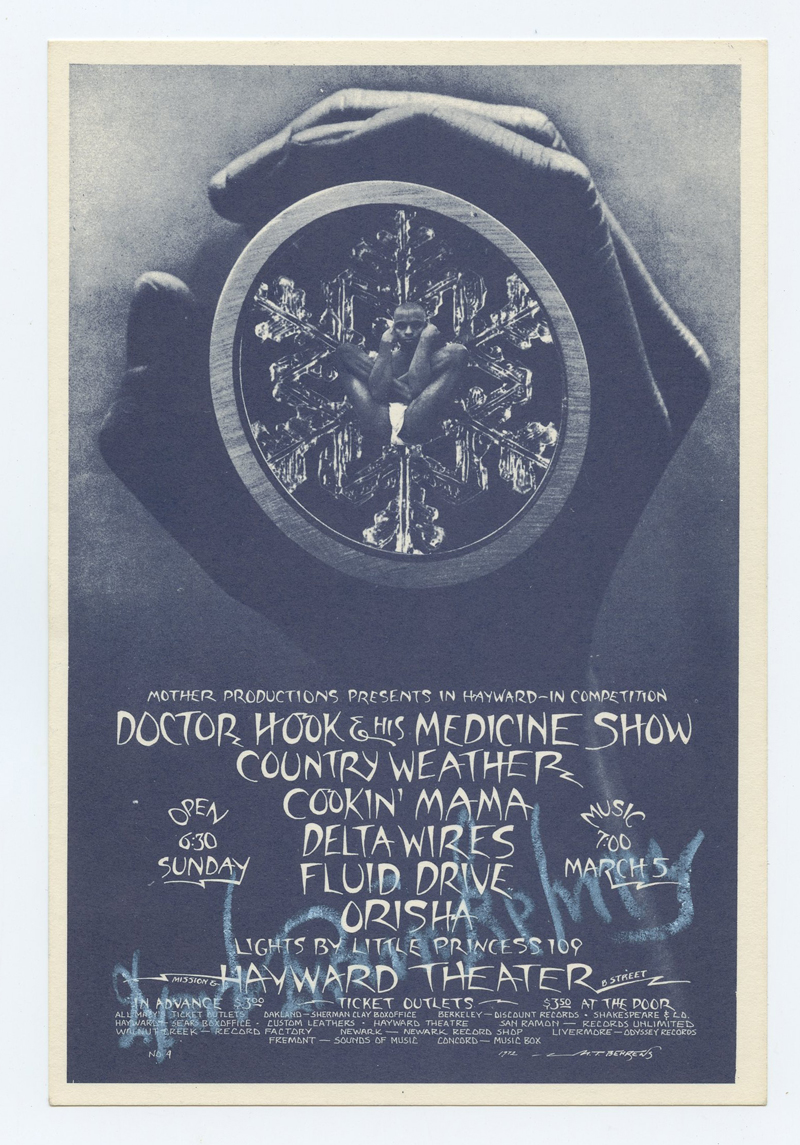 MOTHER PRODUCTIONS PRESENTS IN HAYWARD-IN COMPETITION
DOCTOR HOOK & HIS MEDICINE SHOW
COUNTRY WEATHER
COOKIN' MAMA
DELTA WIRES
FLUID DRIVE
ORISHA
OPEN
6:30
SUNDAY
MUSIC
7:00
MARCH 5
LIGHTS BY LITTLE PRINCESS 109
MISSION & HAYWARD THEATER B STREET
IN ADVANCE $3.00 TICKET OUTLETS $3.50 AT THE DOOR
ALL MACY'S TICKET OUTLETS OAKLAND-SHERMAN CLAY BOXOFFICE BERKELEY-DISCOUNT RECORDS · SHAKESPEARE & CO.
HAYWARD-SEARS BOXOFFICE · CUSTOM LEATHERS · HAYWARD THEATRE SAN RAMON-RECORDS UNLIMITED
WALNUT CREEK-RECORD FACTORY NEWARK-NEWARK RECORD SHOP LIVERMORE-ODYSSEY RECORDS
FREMONT-SOUNDS OF MUSIC CONCORD-MUSIC BOX
NO 4 1972 M.T. BEHRENS